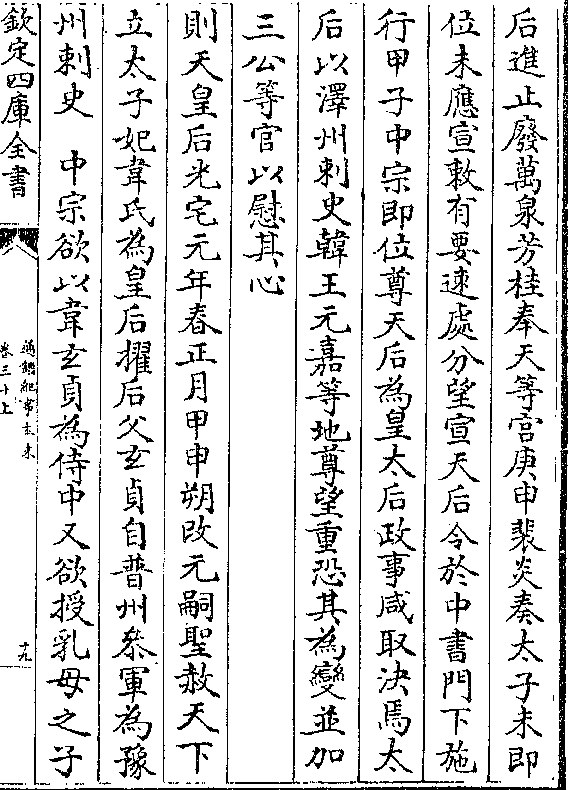 后進止廢萬泉芳桂奉天等宫庚申裴炎奏太子未即
位未應宣敕有要速處分望宣天后令於中書門下施
行甲子中宗即位尊天后為皇太后政事咸取決焉太
后以澤州刺史韓王元嘉等地尊望重恐其為變並加
三公等官以慰其心
則天皇后光宅元年春正月甲申朔改元嗣聖赦天下
立太子妃韋氏為皇后擢后父玄貞自普州參軍為豫
州刺史　中宗欲以韋玄貞為侍中又欲授乳母之子
欽定四庫全書
通鑑紀事本末
卷三十上
十九